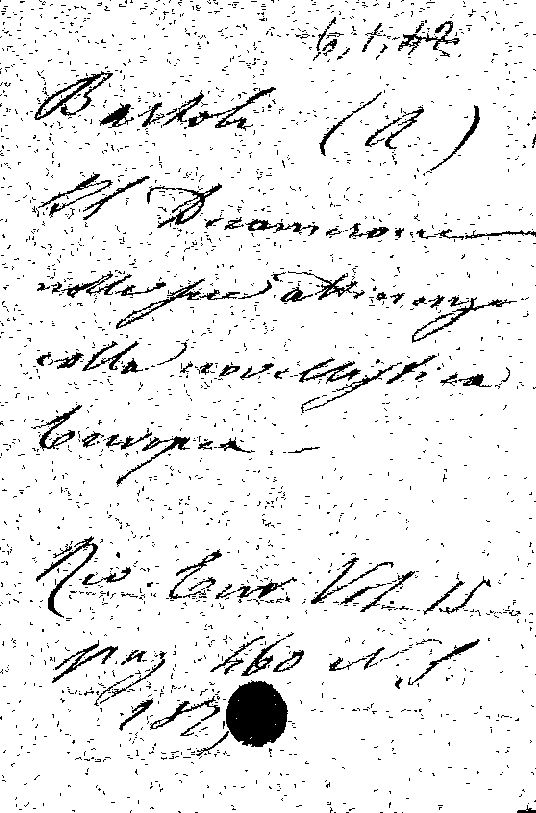 6, 1, 42
Bartoli (A)
Il Decamerone
nelle sue attinenze
colla novellistica
Europea
Riv. Eur. Vol. 15
pag 460 N. S
187